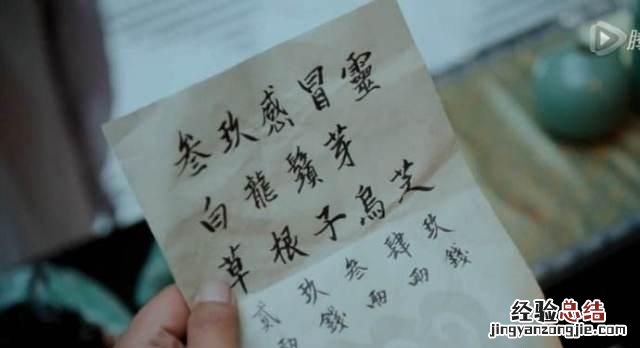 叁玖感冒靈
白龍鬚芽
草根子烏芝
貳玖叁肆玖
兩錢兩兩錢
经验总结
jingyanzongjie.com